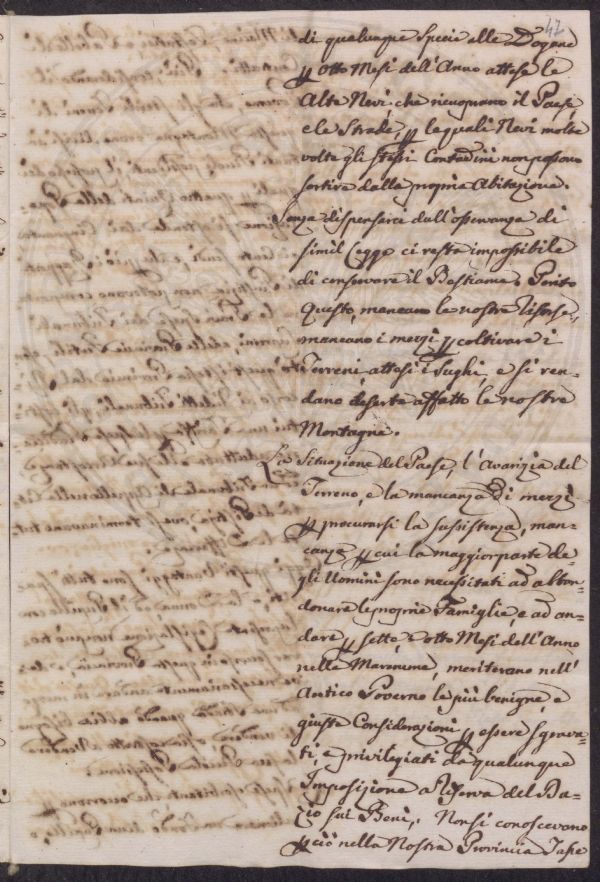 47
di qualunque specie alle Dogane
ꝑ Otto Mesi dell'Anno attese le
Alte Nevi che ricuoprano il Paese,
e le Strade, ꝑ le quali Nevi molte
volte gli stessi Contadini non possono
sortire dalla propria Abitazione.
Senza dispensarci dall'osservanza di
simil Legge ci resta impossibile
di conservare il Bestiame; Perito
questo, mancano le nostre risorse,
mancano i mezzi ꝑ coltivare i
Terreni, attesi i sughi, e si ren-
dano deserte affatto le nostre
Montagne.
La Situazione del Paese, l'Avarizia del
Terreno, e la mancanza di mezzi
ꝑ procurarsi la sussistenza, man-
canza ꝑ cui la maggior parte de-
gli Uomini sono necessitati ad abban-
donare le proprie Famiglie, e ad an-
dare ꝑ sette, o otto Mesi dell'Anno
nelle Maremme, meritorano nell'
Antico Governo le più benigne e
giuste Considerazioni ꝑ essere sgrava-
ti, e privilegiati da qualunque
Imposizione a Riserva del Da-
zio sui Beni. Non si conoscevano
ꝑciò nella Nostra Provincia Tasse